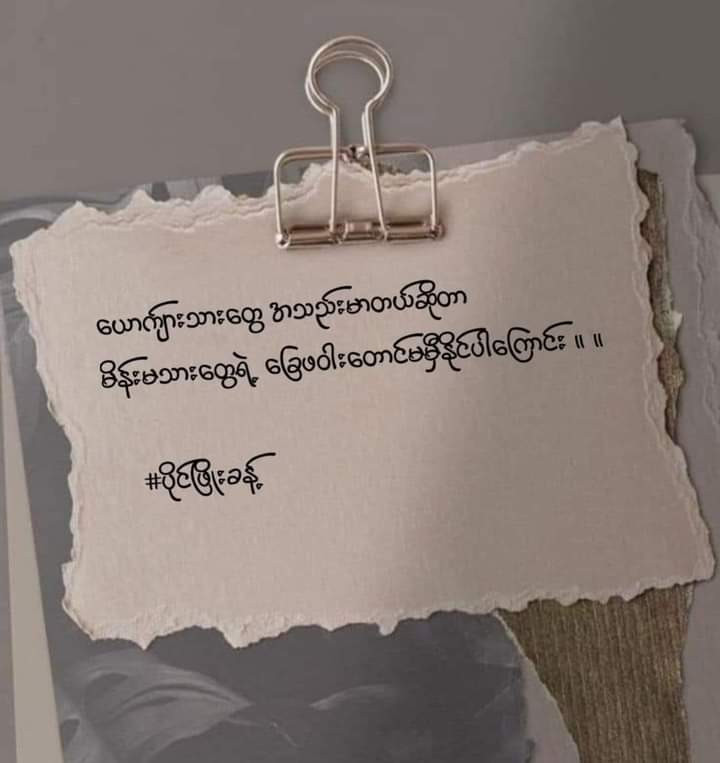 ယောက်ျားသားတွေ အသည်းမာတယ်ဆိုတာ
မိန်းမသားတွေရဲ့ ခြေဖဝါးတောင်မမှီနိုင်ပါကြောင်း ။ ။
#ပိုင်ဖြိုးခန့်